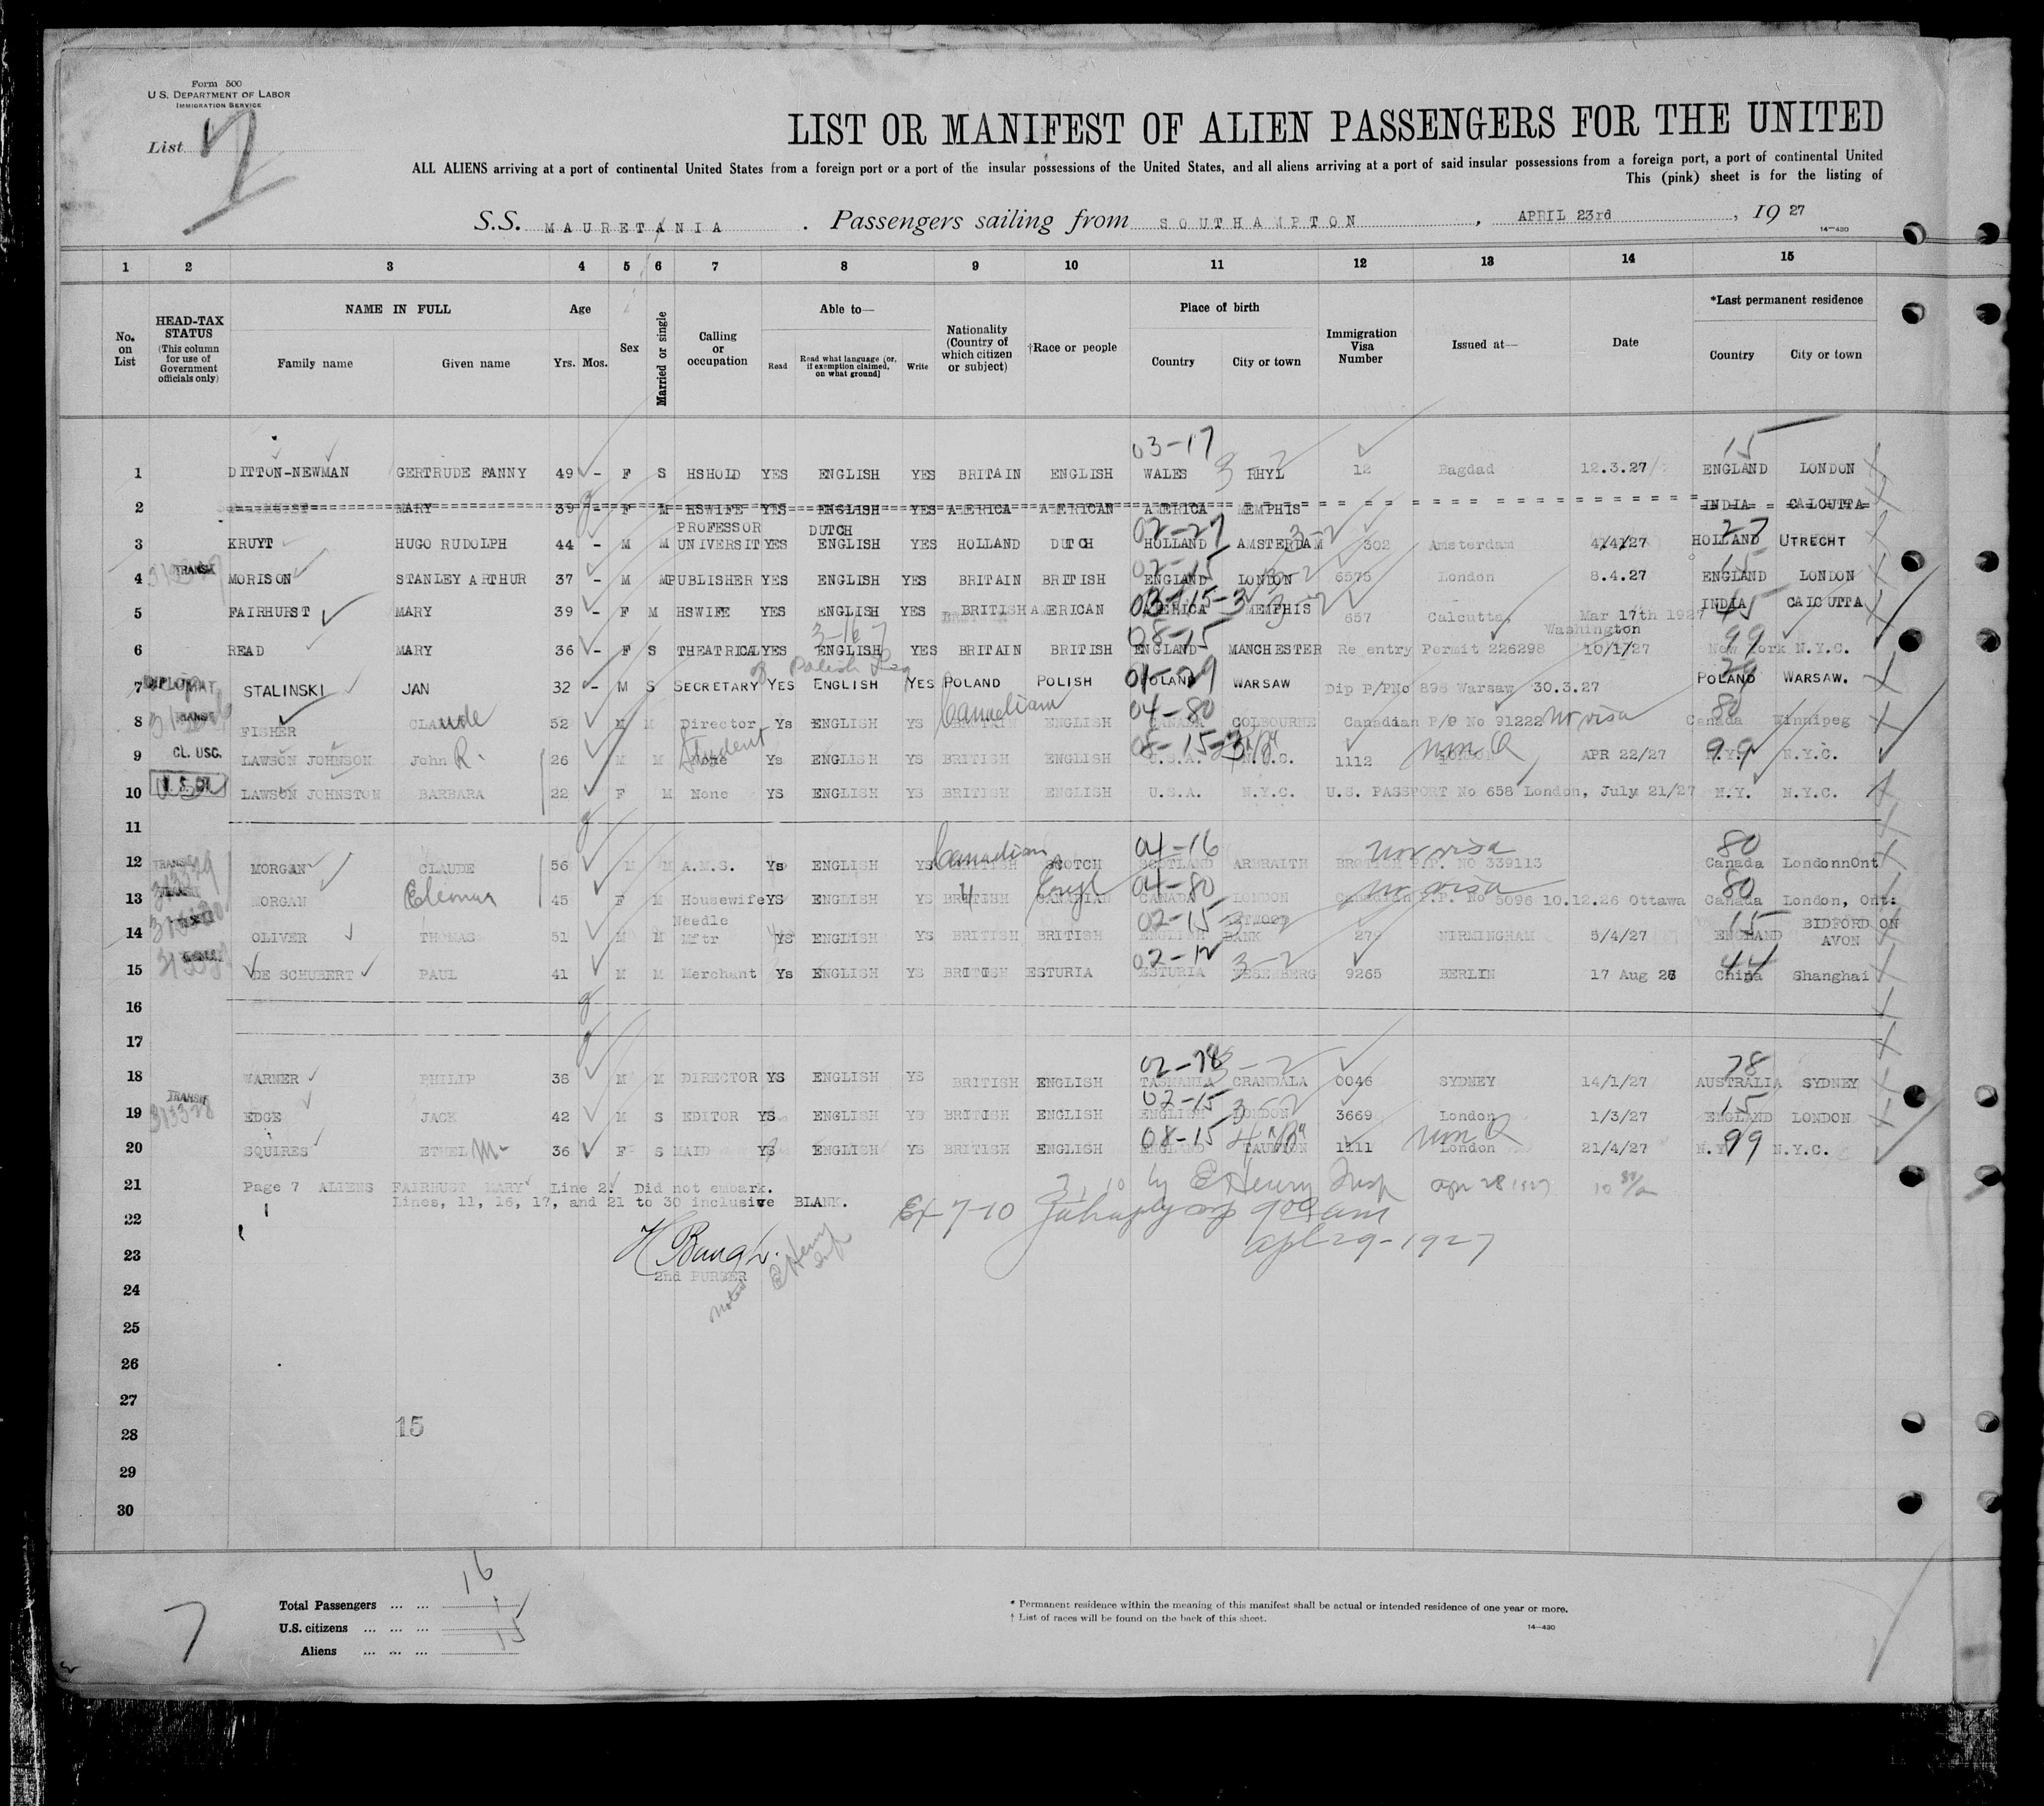 Form 500
U.S. DEPARTMENT OF LABOR
IMMIGRATION SERVICE
List 7
LIST OR MANIFEST OF ALIEN PASSENGERS FOR THE UNITED
ALL ALIENS arriving at a port of continental United States from a foreign port or a port of the insular possessions of the United States, and all aliens arriving at a port of said insular possessions from a foreign port, a port of continental United
This (pink) sheet is for the listing of
S.S. MAURETANIA . Passengers sailing from SOUTHAMPTON , APRIL 23rd , 19 27
14—430
1 2 3 4 5 6 7 8 9 10 11 12 13 14 15
No. on List
HEAD-TAX STATUS (This column for use of Government officials only)
NAME IN FULL
Family name Given name
Age
Yrs. Mos.
Sex
Married or single
Calling or occupation
Able to—
Read Read what language [or, if exemption claimed, on what ground] Write
Nationality (Country of which citizen or subject)
†Race or people
Place of birth
Country City or town
Immigration Visa Number
Issued at—
Date
*Last permanent residence
Country City or town
03-17 15
1 DITTON-NEWMAN GERTRUDE FANNY 49 - F S HSHOLD YES ENGLISH YES BRITAIN ENGLISH WALES RHYL 12 Bagdad 12.3.27 ENGLAND LONDON
2 MARY 39 - F M HSWIFE YES ENGLISH YES AMERICA AMERICAN AMERICA MEMPHIS INDIA CALCUTTA
PROFESSOR DUTCH 02-27 3-2 27
3 KRUYT HUGO RUDOLPH 44 - M M UNIVERSIT YES ENGLISH YES HOLLAND DUTCH HOLLAND AMSTERDAM 302 Amsterdam 4/4/27 HOLLAND UTRECHT
TRANSIT 02-15 3-2 15
4 MORISON STANLEY ARTHUR 37 - M M PUBLISHER YES ENGLISH YES BRITAIN BRITISH ENGLAND LONDON 6575 London 8.4.27 ENGLAND LONDON
03-15-3 45
5 FAIRHURST MARY 39 - F M HSWIFE YES ENGLISH YES BRITISH AMERICAN AMERICA MEMPHIS 657 Calcutta Mar 17th 1927 INDIA CALCUTTA
3-16-7 08-15 Washington 99
6 READ MARY 36 - F S THEATRICAL YES ENGLISH YES BRITAIN BRITISH ENGLAND MANCHESTER Re entry Permit 226298 10/1/27 New York N.Y.C.
DIPLOMAT Polish 01-29 29
7 STALINSKI JAN 32 - M S SECRETARY YES ENGLISH YES POLAND POLISH POLAND WARSAW Dip P/PNo 898 Warsaw 30.3.27 POLAND WARSAW.
TRANSIT Canadian 04-80 80
8 FISHER CLAUDE 52 M M Director Ys ENGLISH YS BRITAIN ENGLISH CANADA COLBOURNE Canadian P/P No 91222 no visa Canada Winnipeg
CL. USC. Student 99
9 LAWSON JOHNSON John R. 26 M M None Ys ENGLISH YS BRITISH ENGLISH U.S.A. N.Y.C. 1112 Non Q APR 22/27 N.Y. N.Y.C.
10 LAWSON JOHNSTON BARBARA 22 F M None YS ENGLISH YS BRITISH ENGLISH U.S.A. N.Y.C. U.S. PASSPORT No 658 London, July 21/27 N.Y. N.Y.C.
11
TRANSIT Canadian 04-16 no visa 80
12 MORGAN CLAUDE 56 M M A.N.S. Ys ENGLISH YS BRITISH SCOTCH SCOTLAND ARBRAITH BRITISH P.P. NO 339113 Canada LondonnOnt
TRANSIT Engl 04-80 no visa 80
13 MORGAN 45 F M Housewife YS ENGLISH YS BRITISH CANADIAN CANADA LONDON Canadian P.P. No 5096 10.12.26 Ottawa Canada London, Ont:
Needle 02-15-3 15 BIDFORD ON
14 OLIVER THOMAS 51 M M Mftr YS ENGLISH YS BRITISH BRITISH ENGLISH BANK 279 NIRMINGHAM 5/4/27 ENGLAND AVON
02-12 3-2 44
15 DE SCHUBERT PAUL 41 M M Merchant Ys ENGLISH YS BRITISH ESTURIA ESTURIA WESENBERG 9265 BERLIN 17 Aug 26 China Shanghai
16
17
02-78 3-2 78
18 WARNER PHILIP 38 M M DIRECTOR YS ENGLISH YS BRITISH ENGLISH TASMANIA CRANDALA 0046 SYDNEY 14/1/27 AUSTRALIA SYDNEY
TRANSIT 02-15 3-2 15
19 EDGE JACK 42 M S EDITOR YS ENGLISH YS BRITISH ENGLISH ENGLISH LONDON 3669 London 1/3/27 ENGLAND LONDON
08-15 Non Q 99
20 SQUIRES ETHEL M- 36 F S MAID YS ENGLISH YS BRITISH ENGLISH ENGLAND TAUNTON 1111 London 21/4/27 N.Y. N.Y.C.
21 Page 7 ALIENS FAIRHUST MARY Line 2. Did not embark.
Lines, 11, 16, 17, and 21 to 30 inclusive BLANK.
7, 10 by E Henry Insp Apr 28 1927
22
Apl 29-1927
23 H Baugh.
2nd PURSER
Noted E Henry Insp
24
25
26
27
28 15
29
30
16
Total Passengers ... ...
U.S. citizens ... ... ... 1
Aliens ... ... ... 15
7
* Permanent residence within the meaning of this manifest shall be actual or intended residence of one year or more.
† List of races will be found on the back of this sheet.
14—430